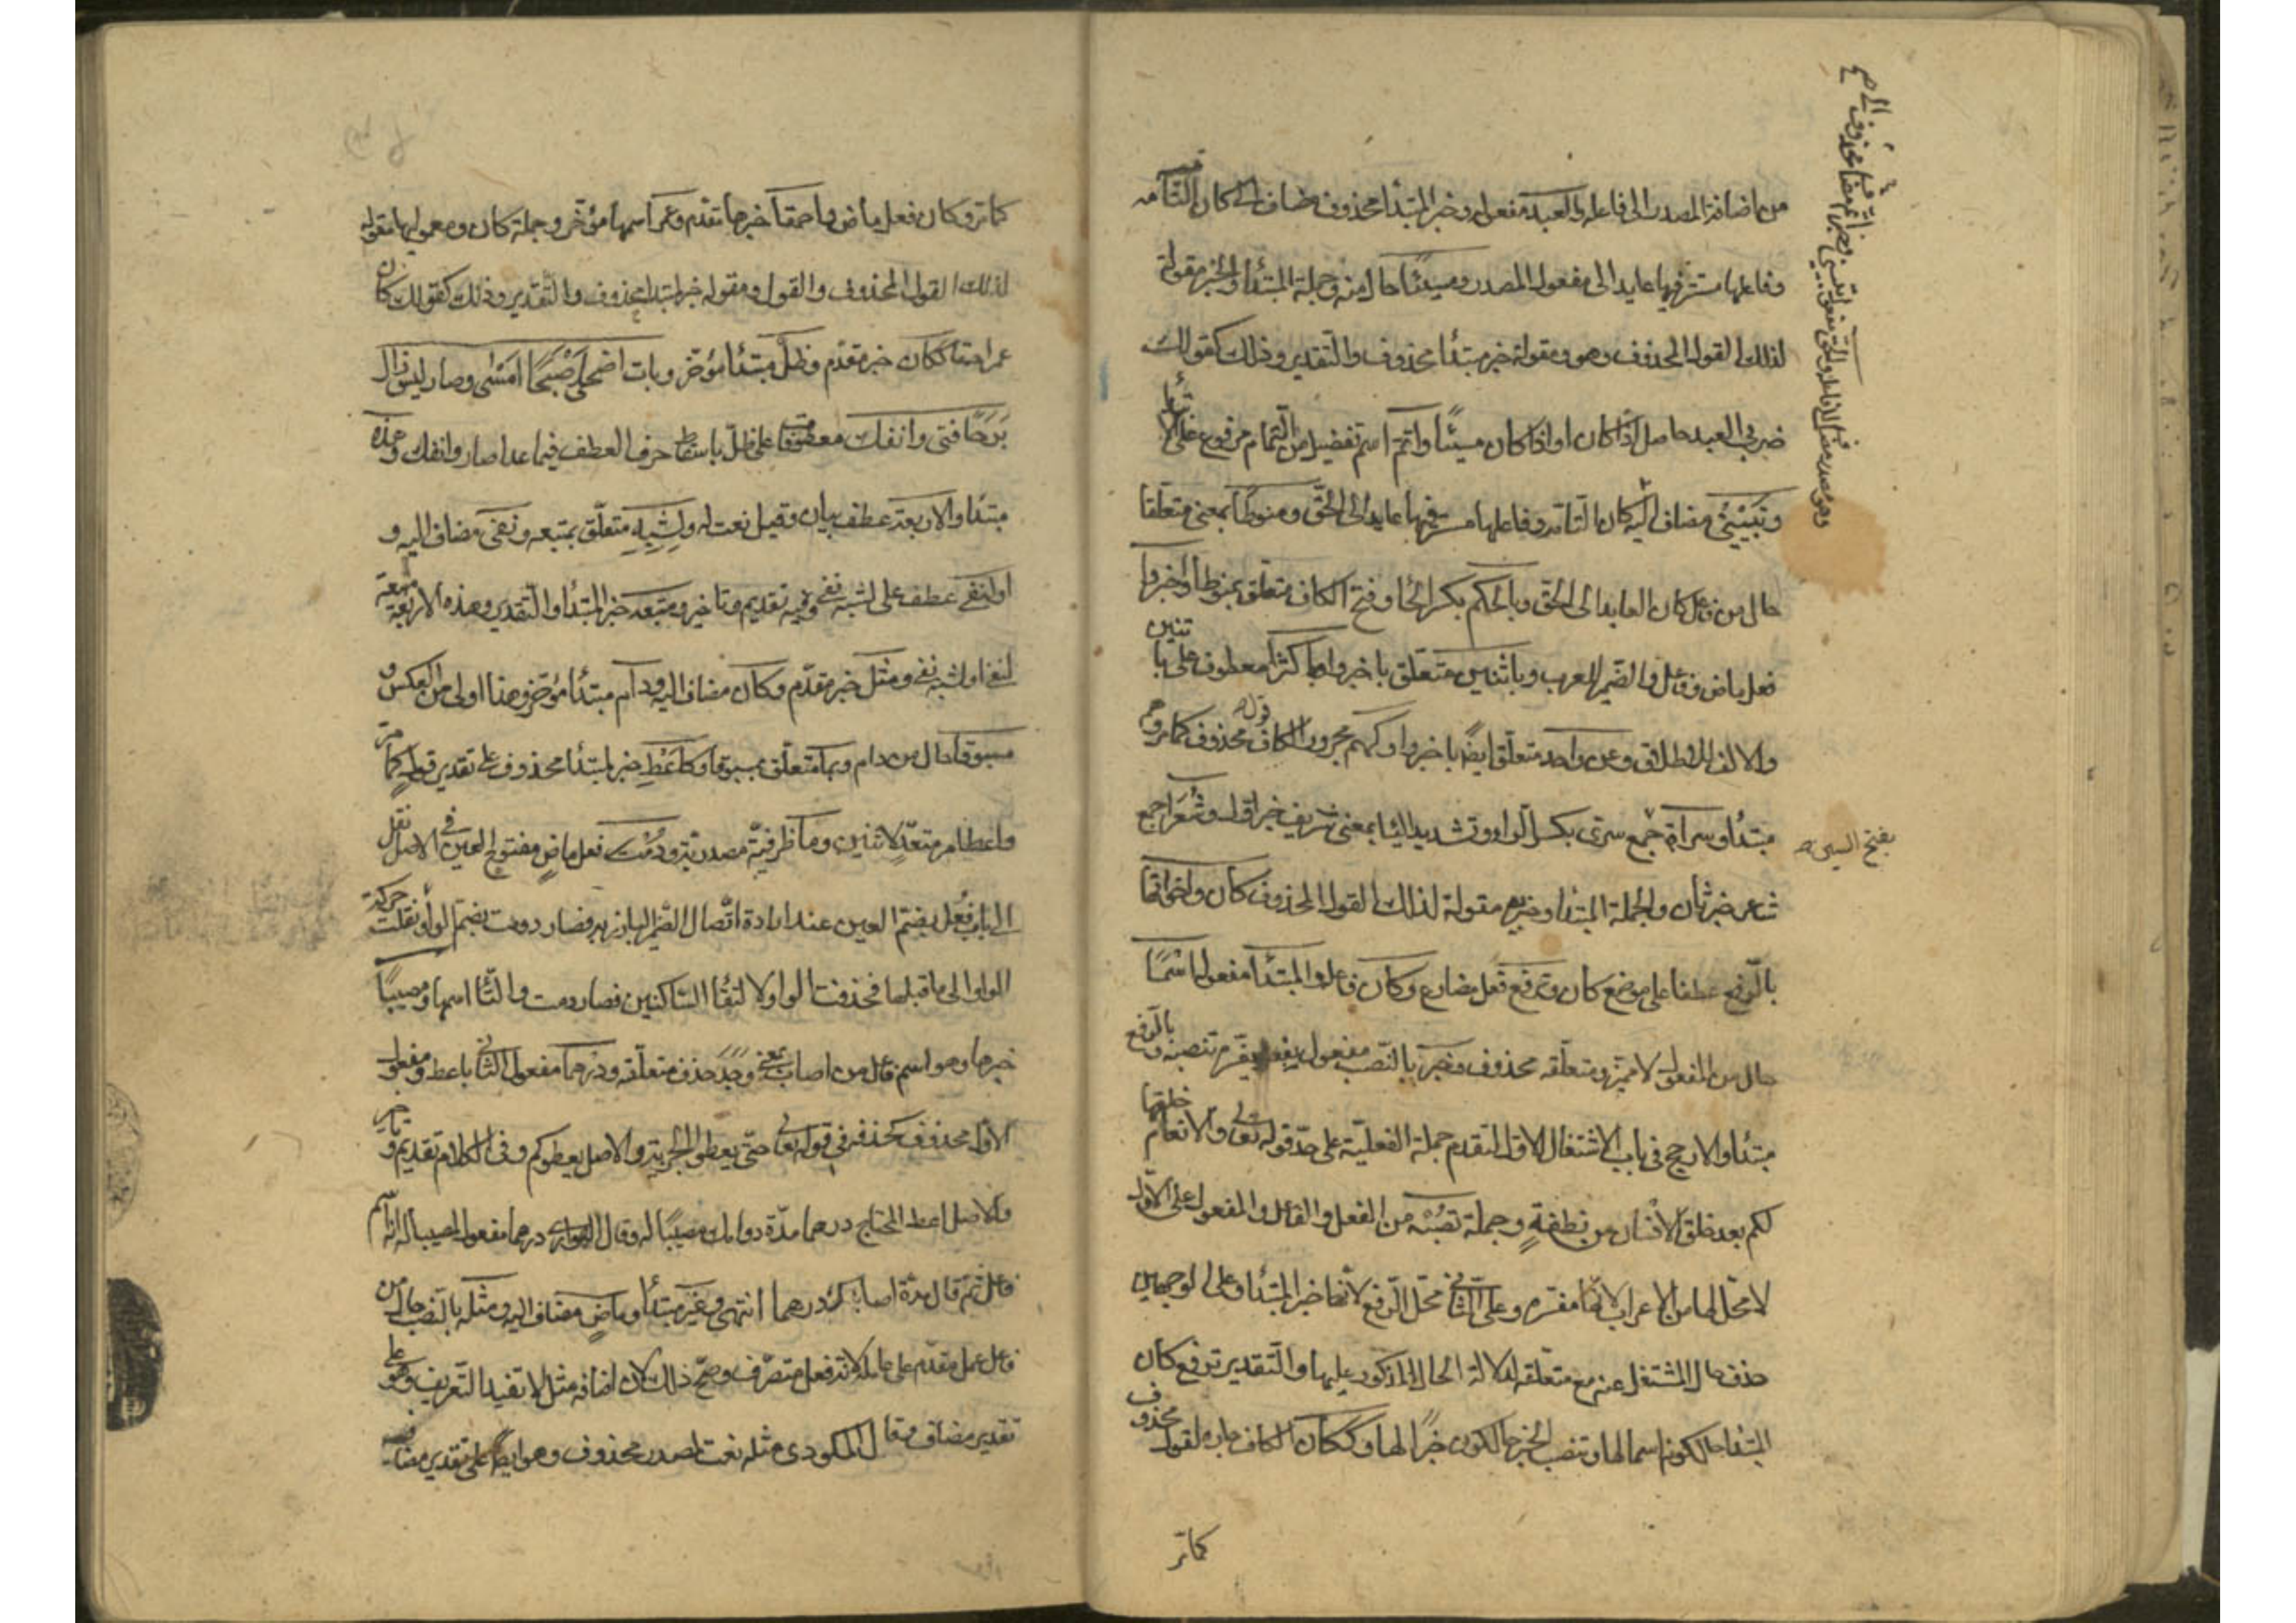 من اضافة المصدر الى فاعله والعبد مفعوله وخبر المبتدا محذوف مضاف الى كان التامة
وفاعلها مستتر فيها عايد الى مفعول المصدر ومسيئًا حال منه وجملة المبتدا والخبر مقولة
لذلك القول المحذوف وهو ومقوله خبر مبتدا محذوف والتقدير وذلك كقولك
ضربي العبد حاصل اذا كان او اذ كان مسيئًا واتم اسم تفضيل من التمام مرفوع على الا
وتبييني مضاف اليه كان التامة وفاعلها مستتر فيها عايد الى الحق ومنوطًا بمعنى متعلقا
حال من فاعل كان العايد الى الحق وبالحكم بكسر الحا وفتح الكاف متعلق بمنوطا واخبروا
فعل ماض وفاعل والضمير للعرب وباثنين متعلق باخبروا او باكثرا معطوف على باثنين
والالف للاطلاق وعن واحد متعلق ايضًا باخبروا وكهم مجرور الكاف قول محذوف كما مر وهم
مبتدا وسراة جمع سري بكسر الراء وتشديد اليا بمعنى شريف خبر اول وشعرا جمع
بفتح السين
شاعر خبر ثان والجملة المبتدا وخبريه مقولة لذلك القول المحذوف كان واخواتها
بالرفع عطفا على موضع كان وترفع فعل مضارع وكان فاعله والمبتدا مفعوله اسمًا
حال من المفعول لا تمييز ومتعلقه محذوف وخبر بالنصب مفعول بفعل يفسره تنصبه وبالرفع
مبتدا والارجح في باب الاشتغال الاول لتقدم جملة الفعلية على حد قوله تعالى والانعام خلقها
لكم بعد خلق الانسان من نطفة وجملة تنصبه من الفعل والفاعل والمفعول على الاول
لا محل لها من الاعراب لانها مفسرة وعلى الثاني محل الرفع لانها خبر المبتدا وعلى الوجهين
حذف حال المشتغل عنه مع متعلقه لدلالة الحال المذكور عليها والتقدير ترفع كان
المبتدا حال كونه اسما لها وتنصب الخبر حال كونه خبرًا لها وككان الكاف جارة لقول محذوف
كما مر
كما مر وكان فعل ماض وسيدا خبرها تقدم وعمر اسمها مؤخر وجملة كان ومعموليها مقولة
لذلك القول المحذوف والقول ومقوله خبر لمبتدا محذوف والتقدير وذلك كقولك كان
ككان خبر مقدم وظل مبتدا مؤخر وبات اضحى اصبحا امسى وصار ليس زال
برحا فتى وانفك معطوفات على ظل باسقاط حرف العطف فيما عدا صار وانفك وهذه
مبتدا والاربعة عطف بيان وقيل نعت له ولشبه متعلق بمتبعه ونفي مضاف اليه و
او لنفي عطف على لشبه نفي وفيه تقديم وتاخير ومتبعه خبر المبتدا والتقدير وهذه الاربعة متبعة
لنفي او لشبه نفي ومثل خبر مقدم وكان مضاف اليه ودام مبتدا مؤخر وهذا اولى من العكس و
مسبوقا حال من دام وبما متعلق بمسبوقا وكاعط خبر لمبتدا محذوف على تقدير قول كما مر
واعط امر متعد لاثنين وما ظرفية مصدرية ودمت فعل ماض مفتوح العين في الاصل نقل
الى باب فعل بضم العين عند ارادة اتصال الضمير البارز به فصار دومت بضم الواو نقلت حركة
الواو الى ما قبلها فحذفت الواو لالتقا الساكنين فصار دمت والتا اسمها ومصيبًا
خبرها وهو اسم فاعل من اصاب بمعنى وجد حذف متعلقه ودرهما مفعول الثاني باعط ومفعول
الاول محذوف كحذفه في قوله تعالى حتى يعطوا الجزية والاصل يعطوكم وفي الكلام تقديم وتاخير
والاصل اعط المحتاج درهما مدة دوامك مصيبًا له وقال الهواري درهما مفعول لمصيبا لانه اسم
فاعل ثم قال مدة اصابتك درهما انتهى وغير مبتدا وماض مضاف اليه ومثله بالنصب حال من
فاعل عمل مقدم على عامله لانه فعل متصرف وصح ذلك لان اضافة مثل لا تفيد التعريف وهو على
تقدير مضاف وقال المكودي مثله نعت لمصدر محذوف وهو ايضًا على تقدير مضاف